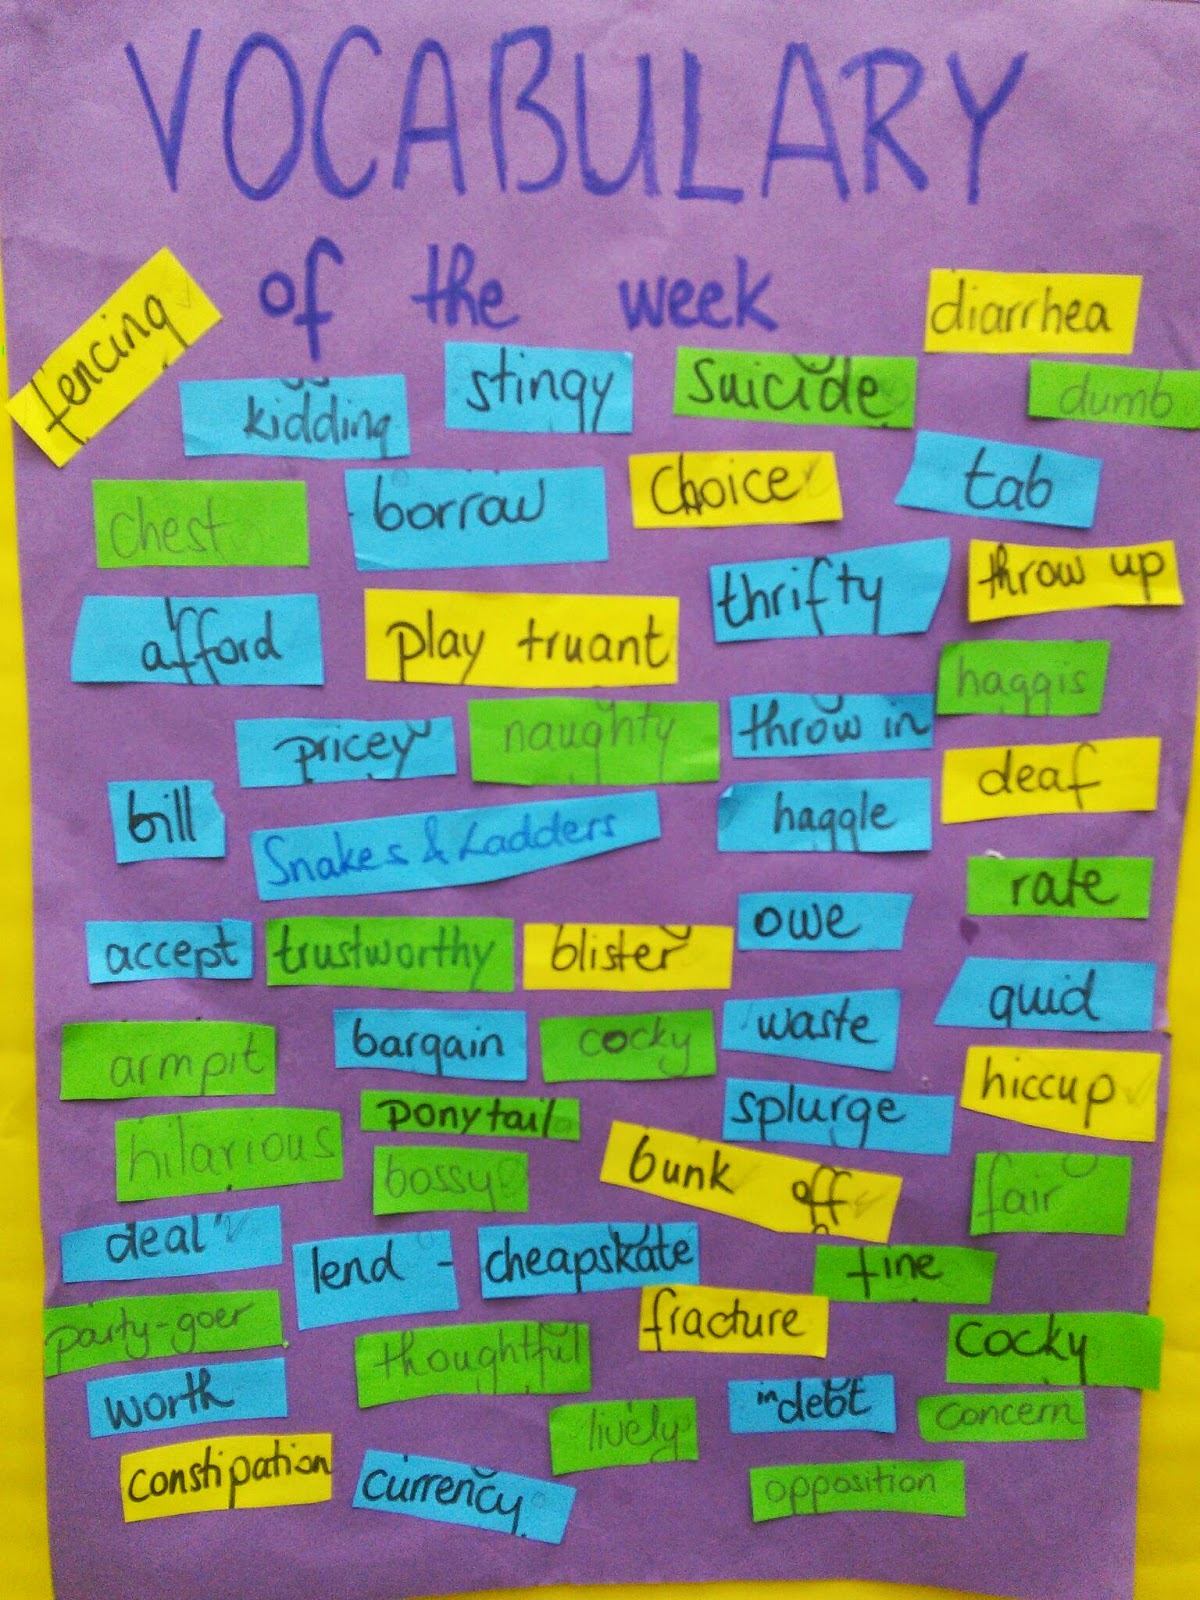 VOCABULARY
of the week
fencing
diarrhea
kidding
stingy
suicide
dumb
chest
borrow
choice
tab
afford
play truant
thrifty
throw up
haggis
pricey
naughty
throw in
deaf
bill
Snakes & Ladders
haggle
rate
accept
trustworthy
blister
owe
quid
armpit
bargain
cocky
waste
hiccup
hilarious
ponytail
bossy
splurge
bunk off
fair
deal
lend -
cheapskate
fine
party-goer
thoughtful
fracture
cocky
worth
lively
in debt
concern
constipation
currency
opposition